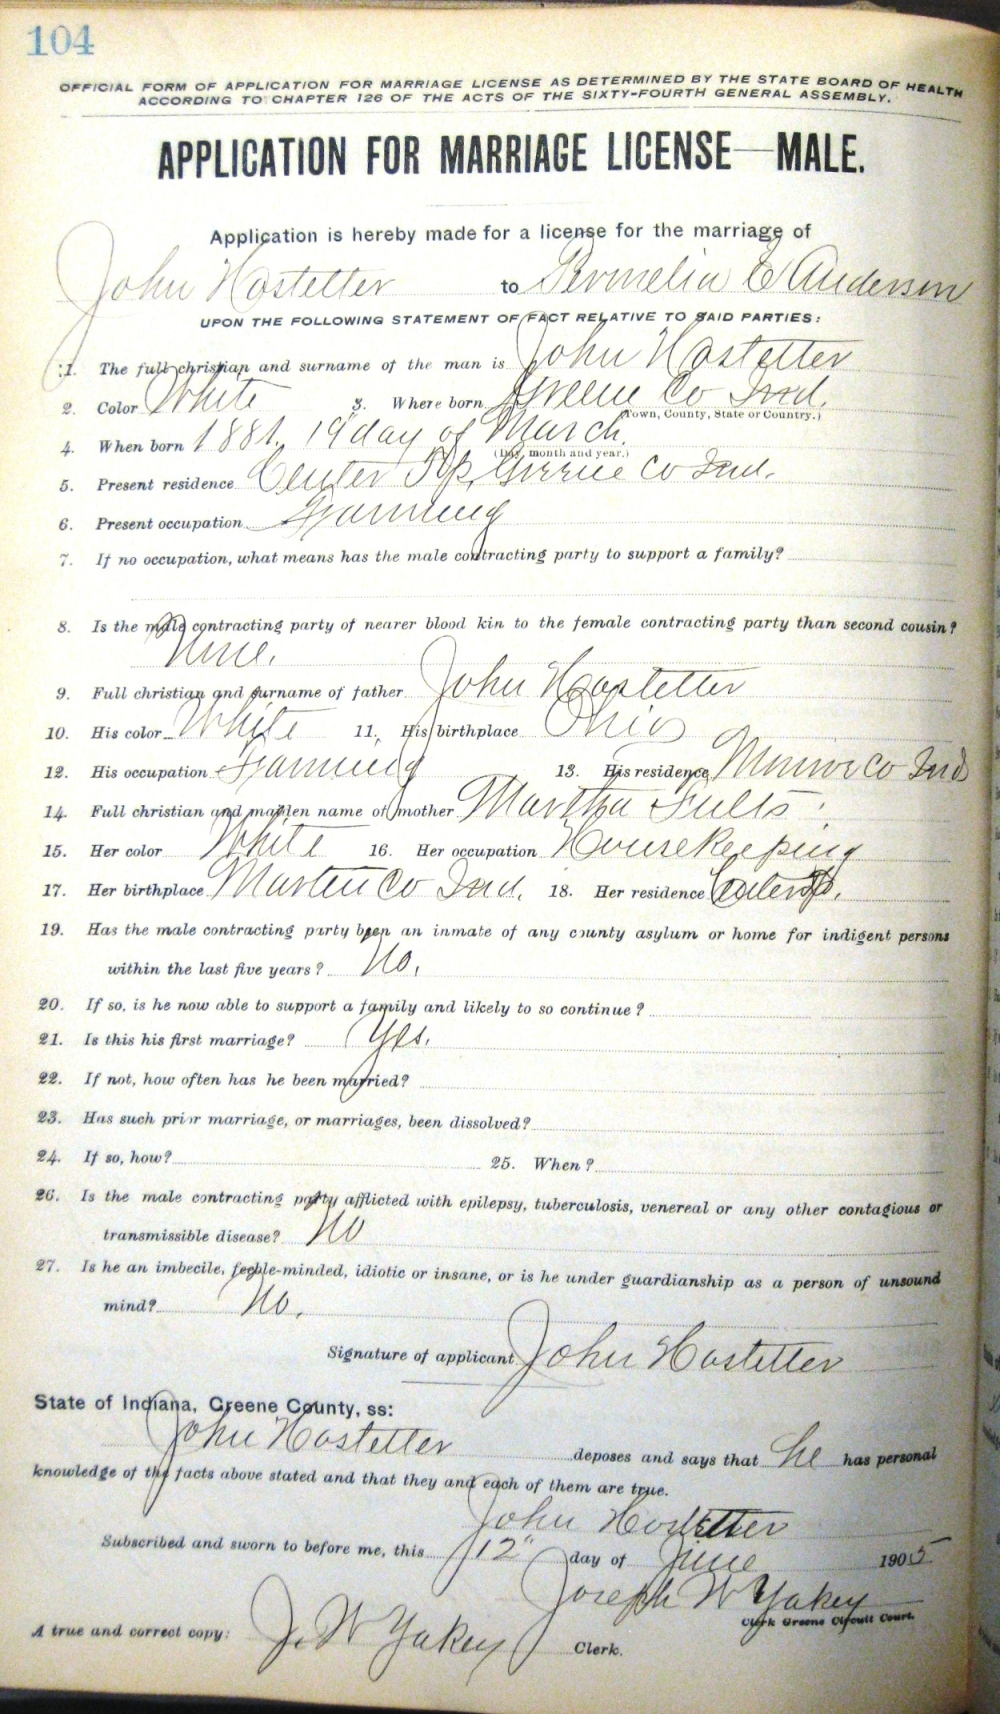 104
OFFICIAL FORM OF APPLICATION FOR MARRIAGE LICENSE AS DETERMINED BY THE STATE BOARD OF HEALTH
ACCORDING TO CHAPTER 126 OF THE ACTS OF THE SIXTY-FOURTH GENERAL ASSEMBLY.
APPLICATION FOR MARRIAGE LICENSE—MALE.
Application is hereby made for a license for the marriage of
John Hostetter to Permelia E Anderson
UPON THE FOLLOWING STATEMENT OF FACT RELATIVE TO SAID PARTIES:
1. The full christian and surname of the man is John Hostetter
2. Color White 3. Where born Greene Co Ind.
(Town, County, State or Country.)
4. When born 1881. 19" day of March.
(Day, month and year.)
5. Present residence Center Tp. Greene Co Ind.
6. Present occupation Farming
7. If no occupation, what means has the male contracting party to support a family?
8. Is the male contracting party of nearer blood kin to the female contracting party than second cousin?
None.
9. Full christian and surname of father John Hostetter
10. His color White 11. His birthplace Ohio
12. His occupation Farming 13. His residence Monroe Co Ind
14. Full christian and maiden name of mother Martha Fults
15. Her color White 16. Her occupation Housekeeping
17. Her birthplace Martin Co Ind. 18. Her residence Center Tp.
19. Has the male contracting party been an inmate of any county asylum or home for indigent persons
within the last five years? No.
20. If so, is he now able to support a family and likely to so continue?
21. Is this his first marriage? Yes.
22. If not, how often has he been married?
23. Has such prior marriage, or marriages, been dissolved?
24. If so, how? 25. When?
26. Is the male contracting party afflicted with epilepsy, tuberculosis, venereal or any other contagious or
transmissible disease? No
27. Is he an imbecile, feeble-minded, idiotic or insane, or is he under guardianship as a person of unsound
mind? No.
Signature of applicant John Hostetter
State of Indiana, Greene County, ss:
John Hostetter deposes and says that he has personal
knowledge of the facts above stated and that they and each of them are true.
John Hostetter
Subscribed and sworn to before me, this 12" day of June 1905
Joseph W Yakey
Clerk Greene Circuit Court.
A true and correct copy: J. W Yakey Clerk.